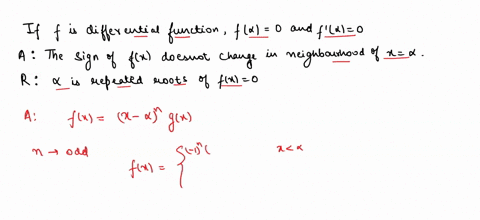 If f is differential function, f(α) = 0 and f'(α) = 0
A : The sign of f(x) doesnot change in neighbourhood of x = α.
R : α is repeated roots of f(x) = 0
A: f(x) = (x - α)^n g(x)
n → odd
f(x) = { (-1)^n ( x < α